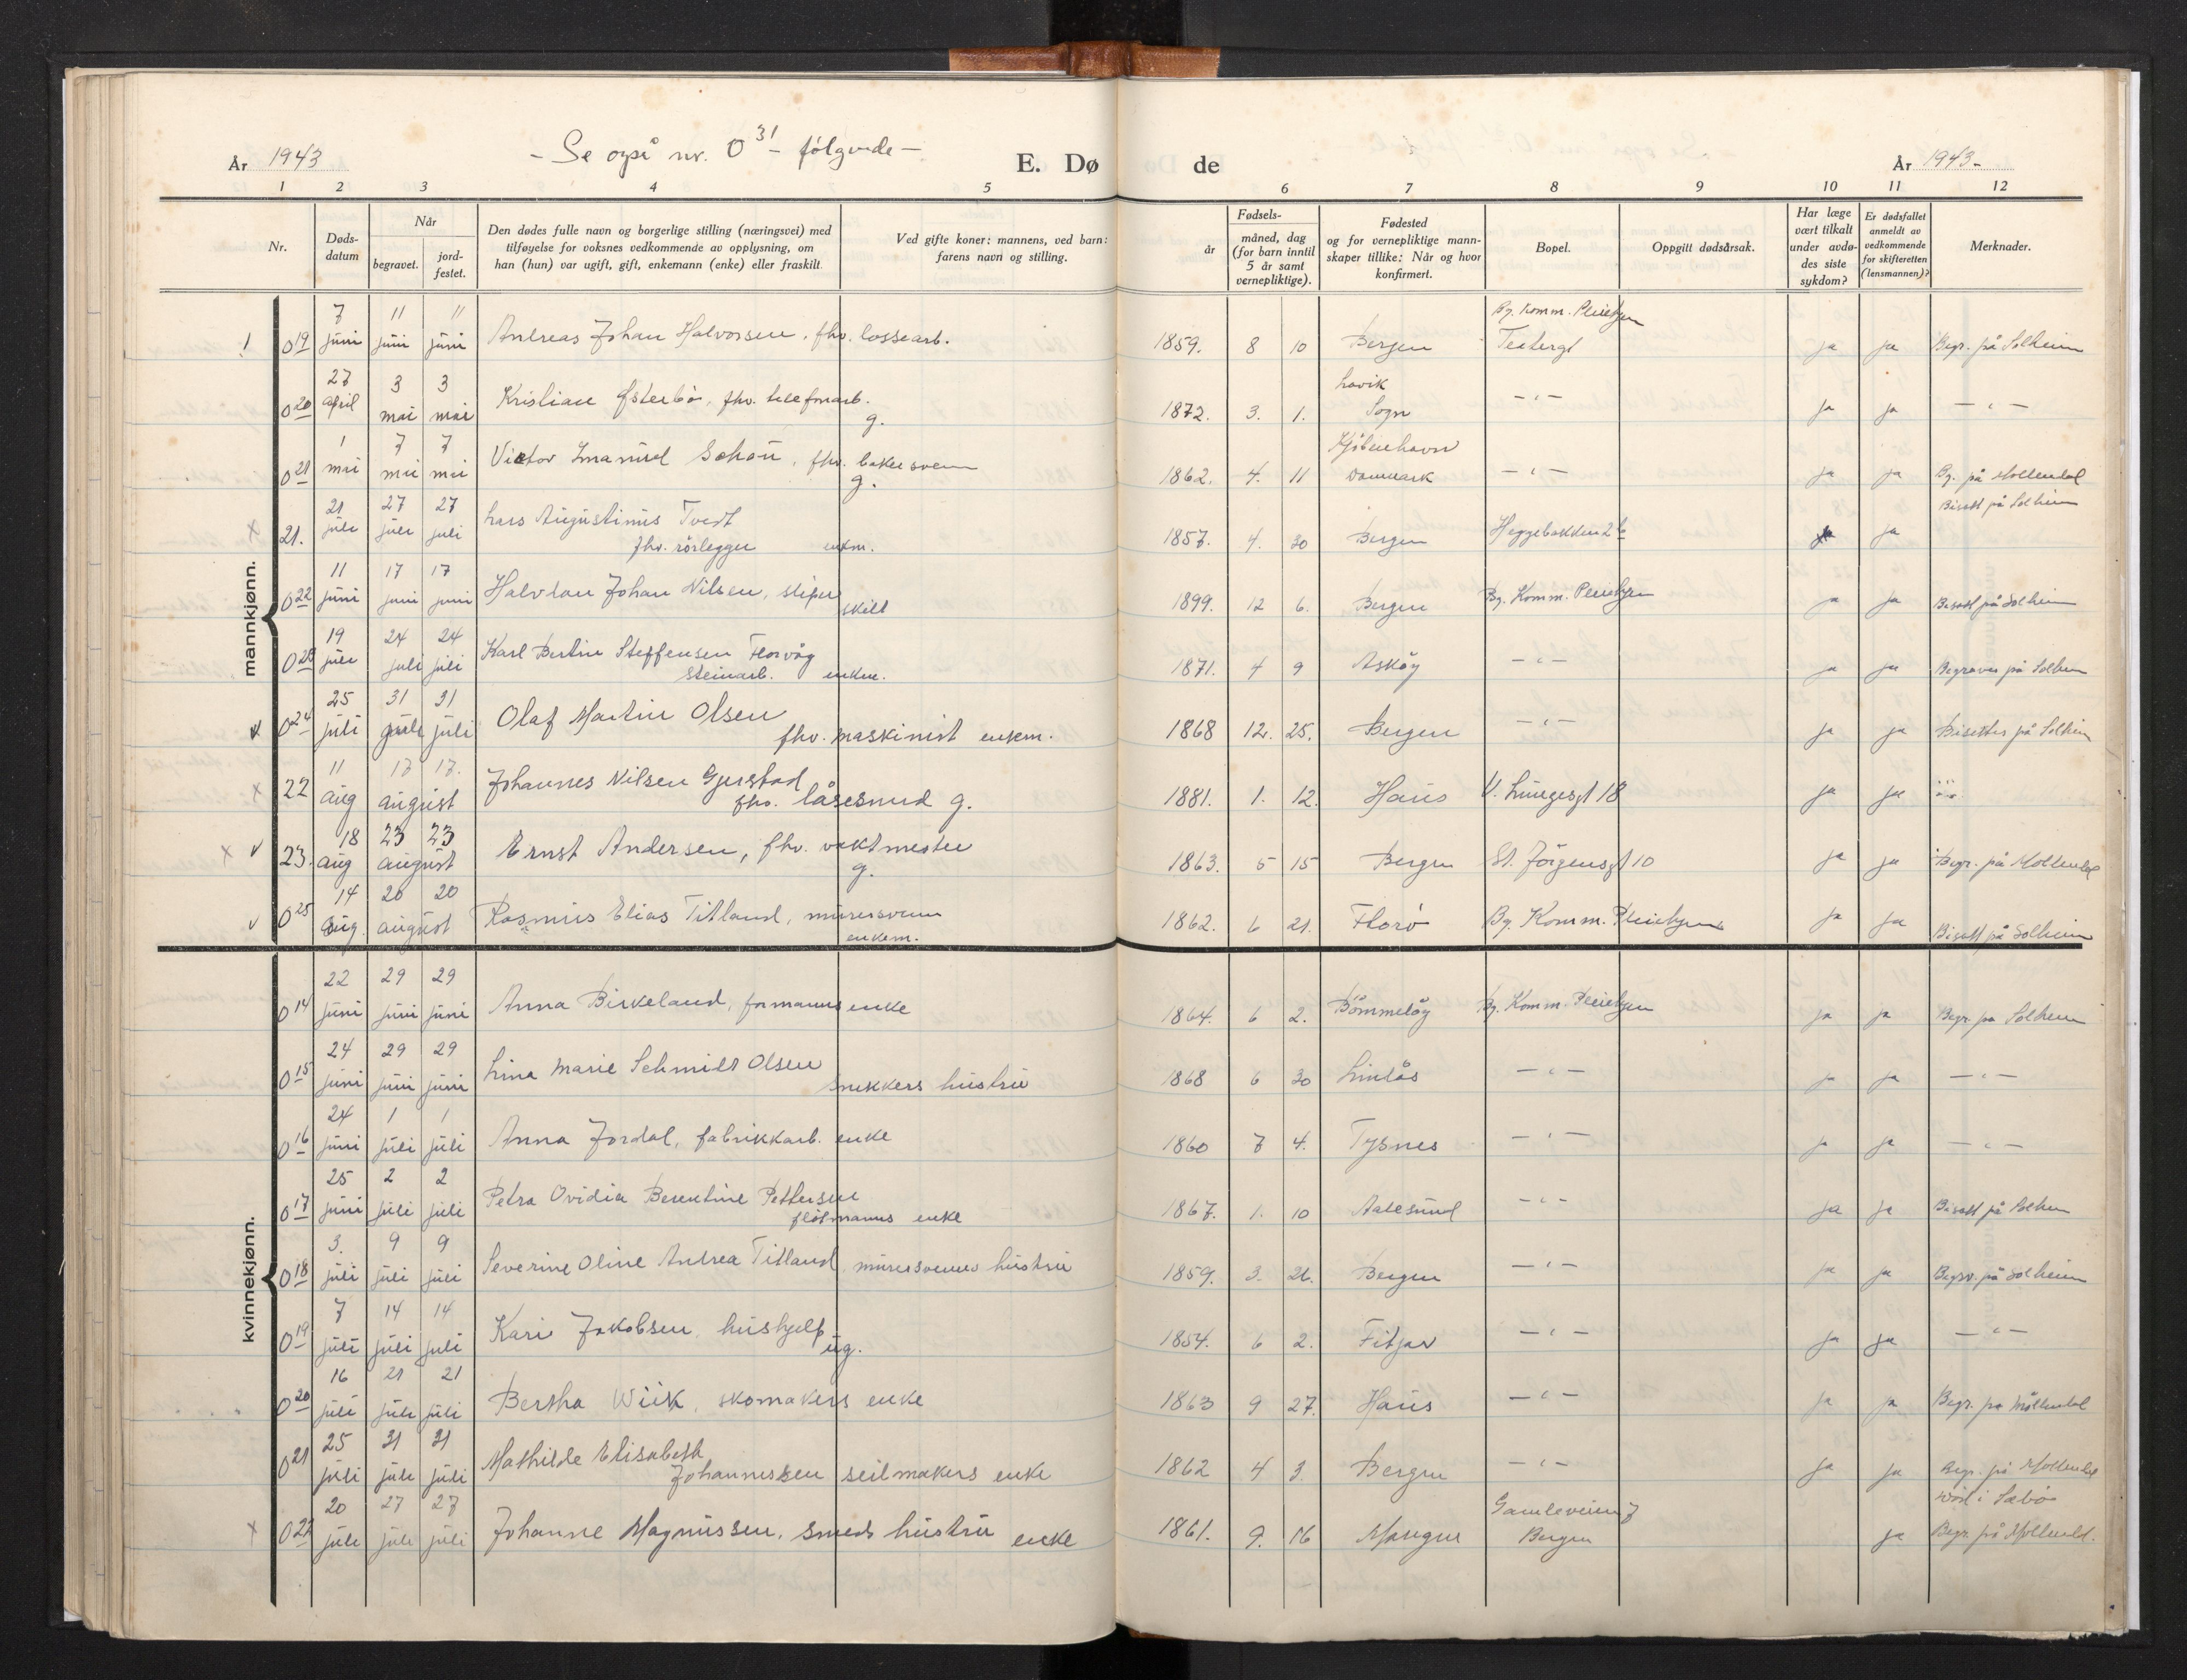 År 1943
- Se også nr. 0 31 - følgende -
E. Dø de
År 1943-
1 2 3 4 5 6 7 8 9 10 11 12
Nr.
Døds-
datum
Når
begravet.
jord-
festet.
Den dødes fulle navn og borgerlige stilling (næringsvei) med
tilføyelse for voksnes vedkommende av opplysning, om
han (hun) var ugift, gift, enkemann (enke) eller fraskilt.
Ved gifte koner: mannens, ved barn:
farens navn og stilling.
Fødsels-
år
måned, dag
(for barn inntil
5 år samt
vernepliktige).
Fødested
og for vernepliktige mann-
skaper tillike: Når og hvor
konfirmert.
Bopel.
Oppgitt dødsårsak.
Har læge
vært tilkalt
under avdø-
des siste
sykdom?
Er dødsfallet
anmeldt av
vedkommende
for skifteretten
(lensmannen)?
Merknader.
mannkjønn.
019 7 juni 11 juni 11 juni Andreas Johan Halvorsen, fhv. lossearb. 1859. 8 10 Bergen By. Komm. Pleiehjem ja ja Begr. på Solheim
020 27 april 3 mai 3 mai Kristian Østerbø, fhv. telefonarb. g. 1872. 3. 1. Lavik Sogn - " - ja ja - " -
021 1 mai 7 mai 7 mai Victor Imanuel Schou, fhv. bakersvenn g. 1862. 4. 11 Kjøbenhavn Danmark - " - ja ja Bg. på Møllendal
21. 21 juli 27 juli 27 juli Lars Augustinus Tvedt fhv. rørlegger enkm. 1857. 4. 30 Bergen Heggebakken 2b ja ja Bisatt på Solheim
022 11 juni 17 juni 17 juni Halvdan Johan Nilsen, sliper skilt 1899. 12 6. Bergen By. Komm. Pleiehjem ja ja Bisatt på Solheim
023 19 juli 24 juli 24 juli Karl Bertin Steffensen Florvåg steinarb. enkm. 1871. 4 9 Askøy - " - ja ja Begraves på Solheim
024 25 juli 31 juli 31 juli Olaf Martin Olsen fhv. maskinist enkm. 1868 12. 25. Bergen - " - ja ja Bisettes på Solheim
22 11 aug 17 17. august Johannes Nilsen Gjerstad fhv. låsesmed g. 1881. 1. 12. Haus V. Lungegt 18 ja ja
23. 18 aug 23 23 august Ernst Andersen, fhv. vaktmester g. 1863. 5 15 Bergen St. Jørgensgt 10 ja ja Begr. på Møllendal
025 14 aug. 20 20 august Rasmus Elias Titland, murersvenn enkem. 1862. 6 21. Florø By. Komm. Pleiehjem ja ja Bisatt på Solheim
kvinnekjønn.
014 22 juni 29 juni 29 juni Anna Birkeland, formanns enke 1864. 6 2. Bømmeløy By. Komm. Pleiehjem ja ja Begr. på Solheim
015 24 juni 29 juni 29 juni Lina Marie Schmidt Olsen snekkers hustru 1868 6 30 Lindås - " - ja ja - " -
016 24 juni 1 juli 1 juli Anna Jordal, fabrikkarb. enke 1860 7 4. Tysnes - " - ja ja - " -
017 25 juni 2 juli 2 juli Petra Ovidia Berentine Pettersen flötmanns enke 1867. 1. 10 Aalesund - " - ja ja Bisatt på Solheim
018 3. juli 9 juli 9 juli Severine Oline Andrea Titland, murersvenns hustru 1859. 3. 26. Bergen - " - ja ja Begrv. på Solheim
019 7 juli 14 juli 14 juli Kari Jakobsen, hushjelp ug. 1854. 6 2. Fitjar - " - ja ja - " -
020 16 juli 21 juli 21 juli Bertha Wiik, skomakers enke 1863 9 27. Haus - " - ja ja Begr. på Møllendal
021 25 juli 31 juli 31 juli Mathilde Elisabeth Johannessen seilmakers enke 1862 4 3. Bergen - " - ja ja Begr. på Møllendal
022 20 juli 27 juli 27 juli Johanne Magnussen, smeds hustru enke 1861. 9. 16 Manger Gamleveien 7 Bergen ja Begr. på Møllendal.